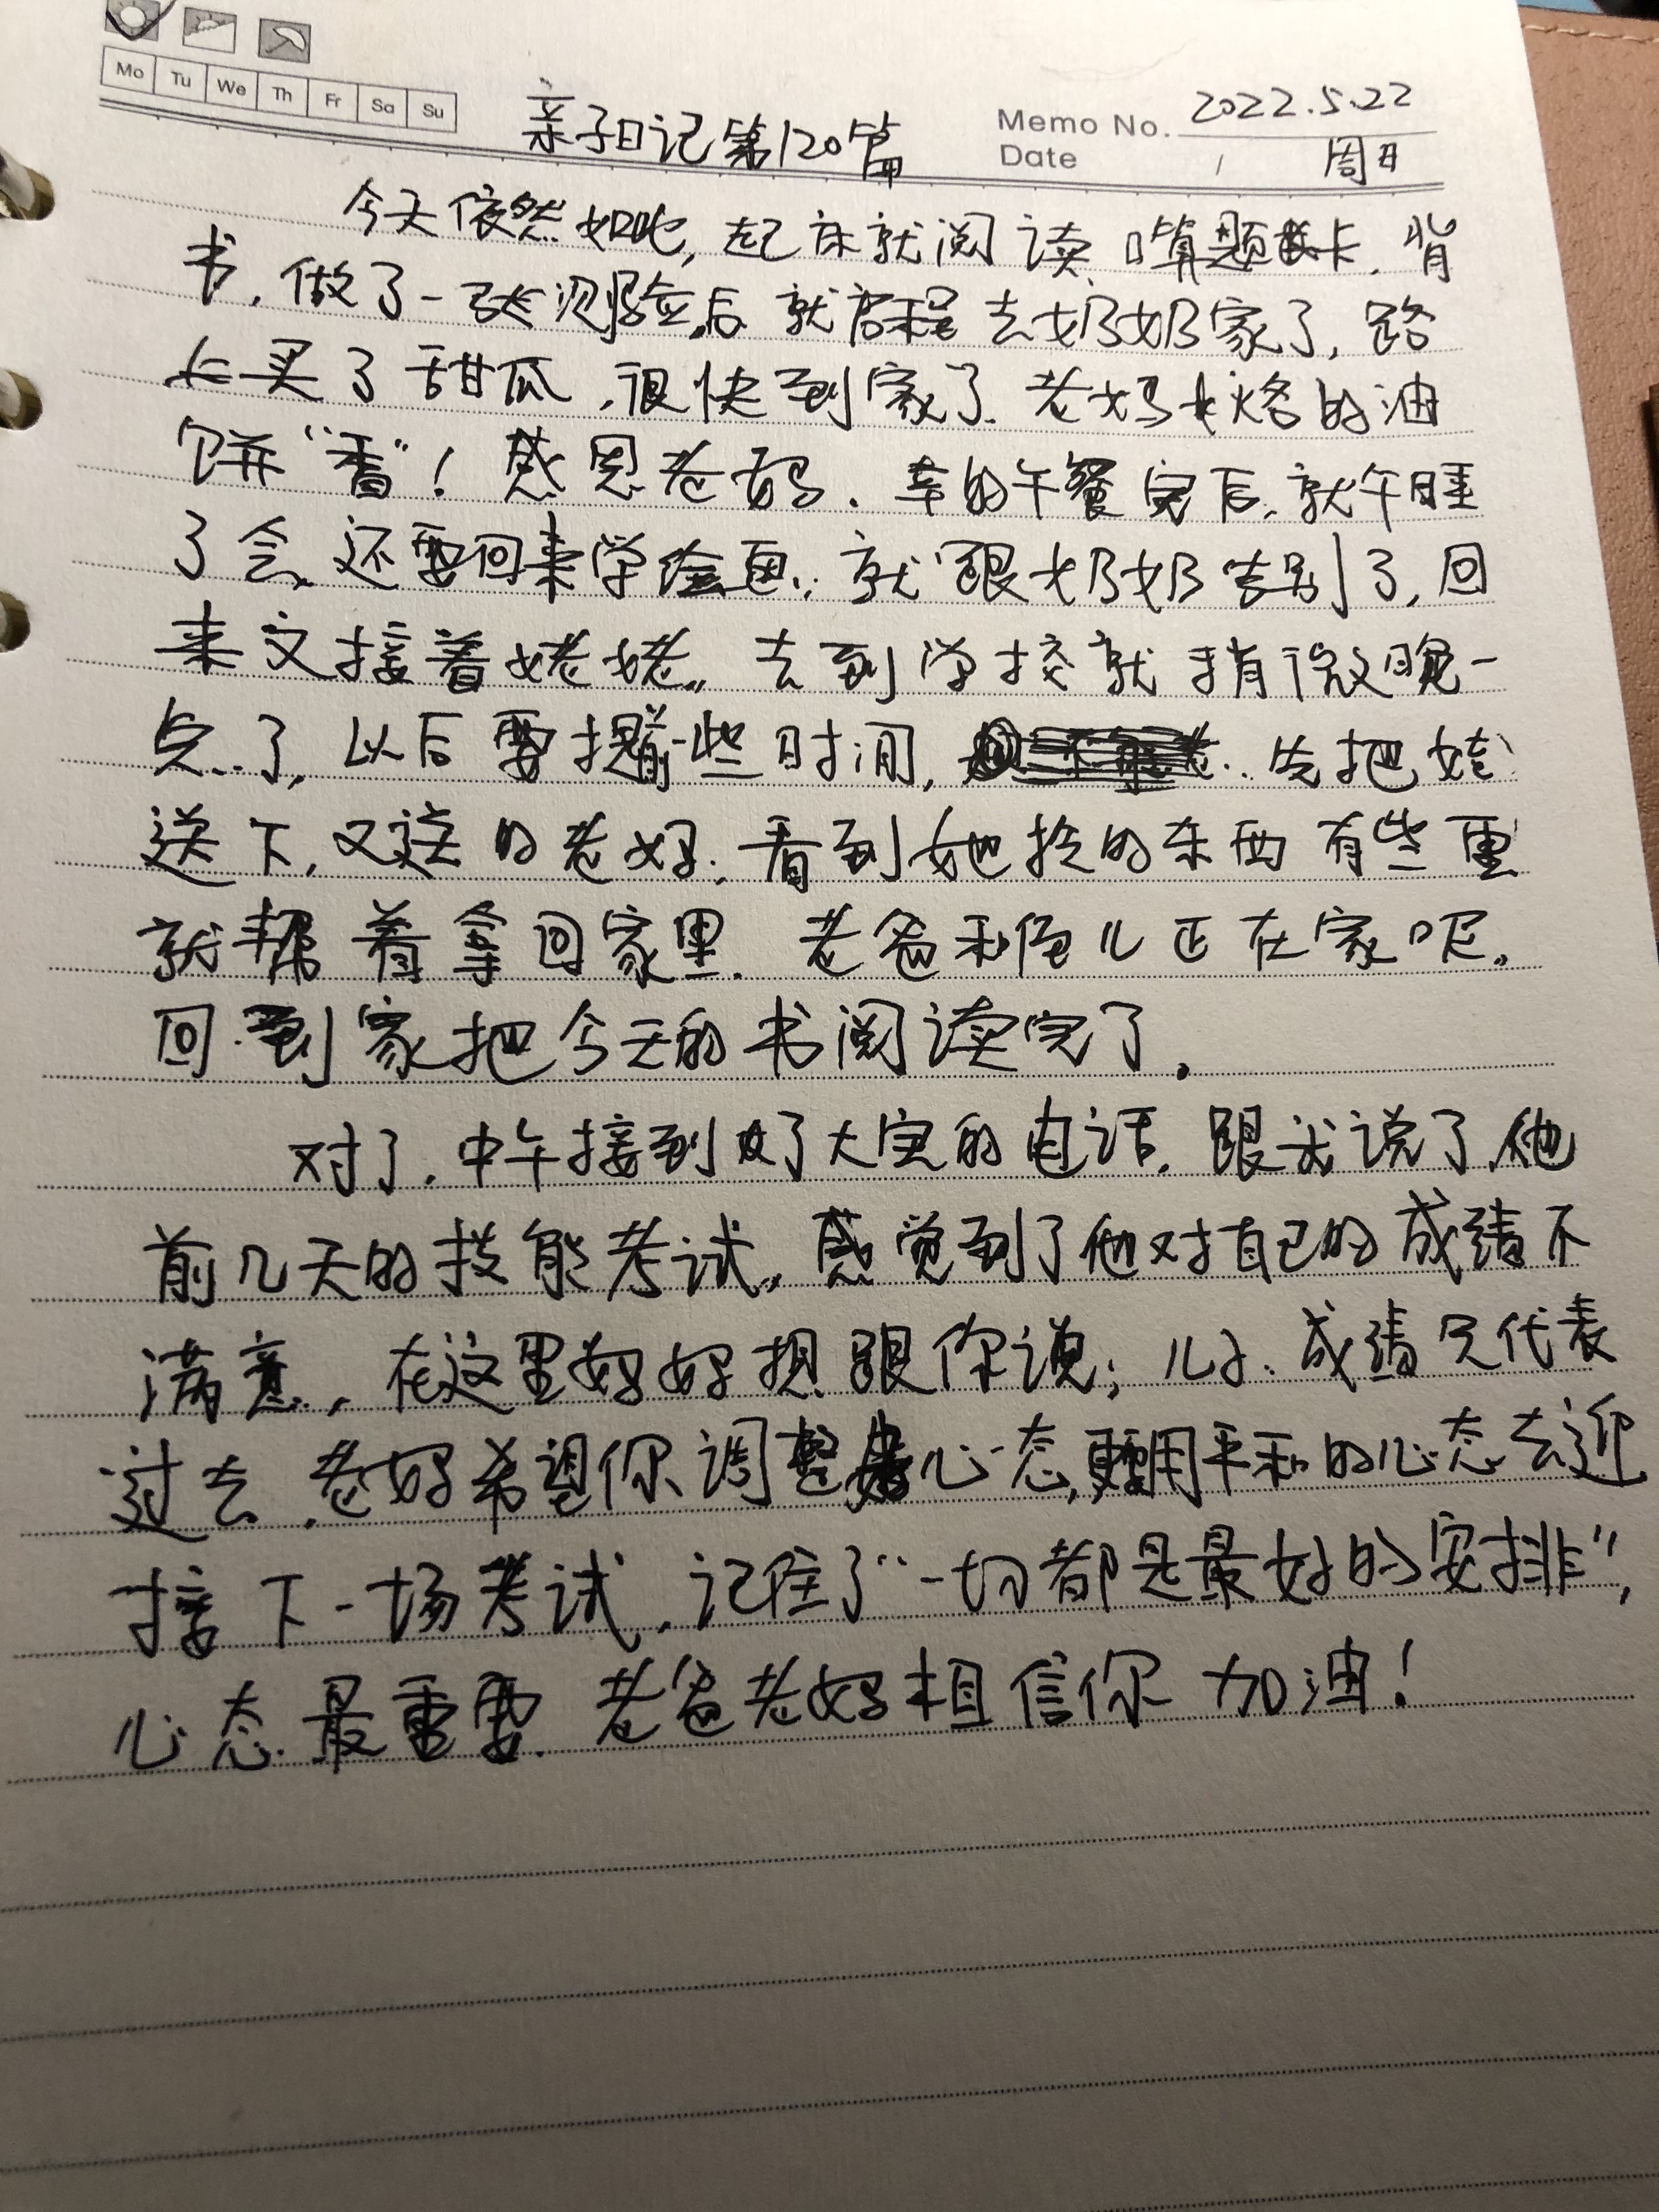 Mo Tu We Th Fr Sa Su
亲子日记第120篇
Memo No. 2022.5.22
Date / 周日
今天依然如此,起床就阅读、口算题卡,背
书,做了一张测验后,就启程去奶奶家了,路
上买了甜瓜,很快到家了.老妈烙的油
饼"香"!感恩老妈.幸的午餐完后,就午睡
了会,还要回来学绘画,就跟奶奶告别了,回
来又接着姥姥,去到学校就稍微晚一
点了,以后要提前一些时间,先把娃
送下,又送的老妈,看到她拎的东西有些重
就帮着拿回家里.老爸和侄儿正在家呢.
回到家把今天的书阅读完了.
对了.中午接到了大宝的电话.跟我说了他
前几天的技能考试,感觉到了他对自己的成绩不
满意,在这里妈妈想跟你说;儿子.成绩只代表
过去.老妈希望你调整心态,要用平和的心态去迎
接下一场考试.记住了"一切都是最好的安排",
心态最重要.老爸老妈相信你 加油!